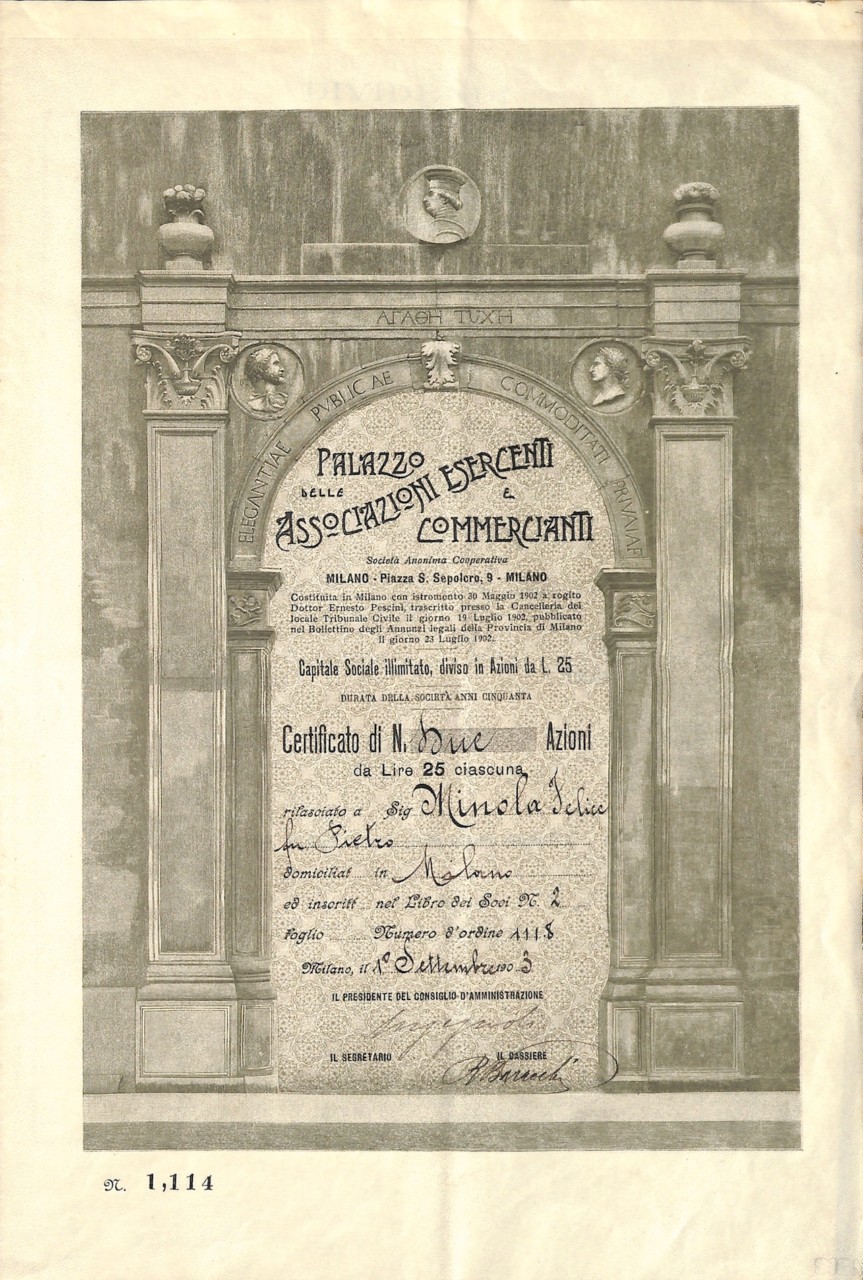 ΑΓΑΘΗ ΤΥΧΗ
ELEGANTIAE PVBLICAE COMMODITATI PRIVATAE
PALAZZO
DELLE
ASSOCIAZIONI ESERCENTI
E
COMMERCIANTI
Società Anonima Cooperativa
MILANO - Piazza S. Sepolcro, 9 - MILANO
Costituita in Milano con istromento 30 Maggio 1902 a rogito
Dottor Ernesto Pescini, trascritto presso la Cancelleria del
locale Tribunale Civile il giorno 19 Luglio 1902, pubblicato
nel Bollettino degli Annunzi legali della Provincia di Milano
il giorno 23 Luglio 1902.
Capitale Sociale illimitato, diviso in Azioni da L. 25
DURATA DELLA SOCIETÀ ANNI CINQUANTA
Certificato di N. Due Azioni
da Lire 25 ciascuna
rilasciato a Sig Minola Felice
fu Pietro
domiciliat in Milano
ed inscritt nel Libro dei Soci N. 2
foglio Numero d'ordine 1118
Milano, il 1° Settembre 1903
IL PRESIDENTE DEL CONSIGLIO D'AMMINISTRAZIONE
IL SEGRETARIO IL CASSIERE
N. 1,114